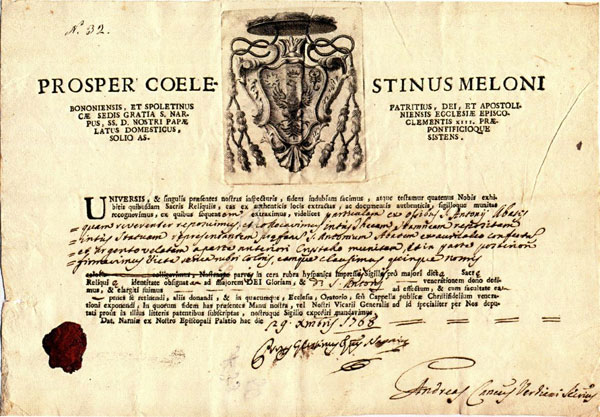 N.º 32.
PROSPER COELE-STINUS MELONI
BONONIENSIS, ET SPOLETINUS PATRITIUS, DEI, ET APOSTOLI-
CÆ SEDIS GRATIA S. NAR- NIENSIS ECCLESIÆ EPISCO-
PUS, SS. D. NOSTRI PAPÆ CLEMENTIS XIII. PRÆ-
LATUS DOMESTICUS, PONTIFICIOQUE
SOLIO AS- SISTENS.
UNIVERSIS, & singulis præsentes nostras inspecturis, fidem indubiam facimus, atque testamur quatenus Nobis exhi-
bitis quibusdam Sacris Reliquiis, eas ex authenticis locis extractas, ac documentis authenticis, sigilloque munitas
recognovimus, ex quibus sequentem extraximus, videlicet particulam ex ossibus S. Antonij Abatis
quam reverenter reposuimus, et collocavimus intus thecam
intus Statuam S. Antonium Abatem
ex Argento a parte anteriori Crystallo munitam, et in parte posteriori
firmavimus Vitta rubri coloris, eamque clausimus, quinque nostris
colligavimus, Nostroque parvo in cera rubra hyspanica impresso Sigillo pro majori dictæ Sacræ
Reliquiæ identitate obsignatam ad majorem DEI Gloriam, & dⁱ S. Antonij venerationem dono dedi-
mus, & elargiti sumus ad effectum, & cum facultate ea
penes se retinendi, aliis donandi, & in quacumque, Ecclesia, Oratorio, seu Cappella publicæ Christifidelium venera-
tioni exponendi, In quorum fidem has præsentes Manu nostra, vel Nostri Vicarii Generalis ad id specialiter per Nos depu-
tati prout in istis litteris patentibus subscriptas, nostroque Sigillo expediri mandavimus.
Dat. Narniæ ex Nostro Episcopali Palatio hac die 29. Xmbris 1768
Andreas Secrius